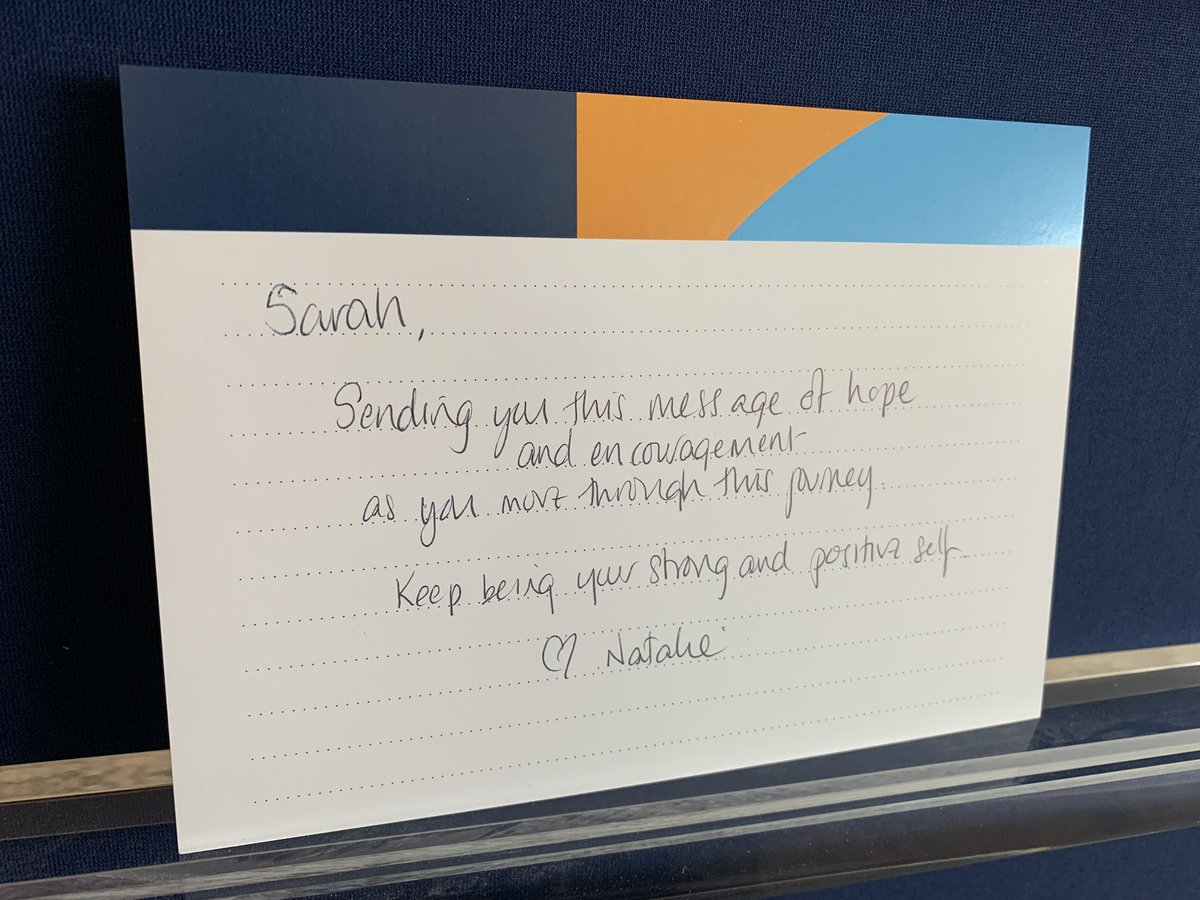 Sarah,
Sending you this message of hope
and encouragement
as you move through this journey.
Keep being your strong and positive self
♡ Natalie